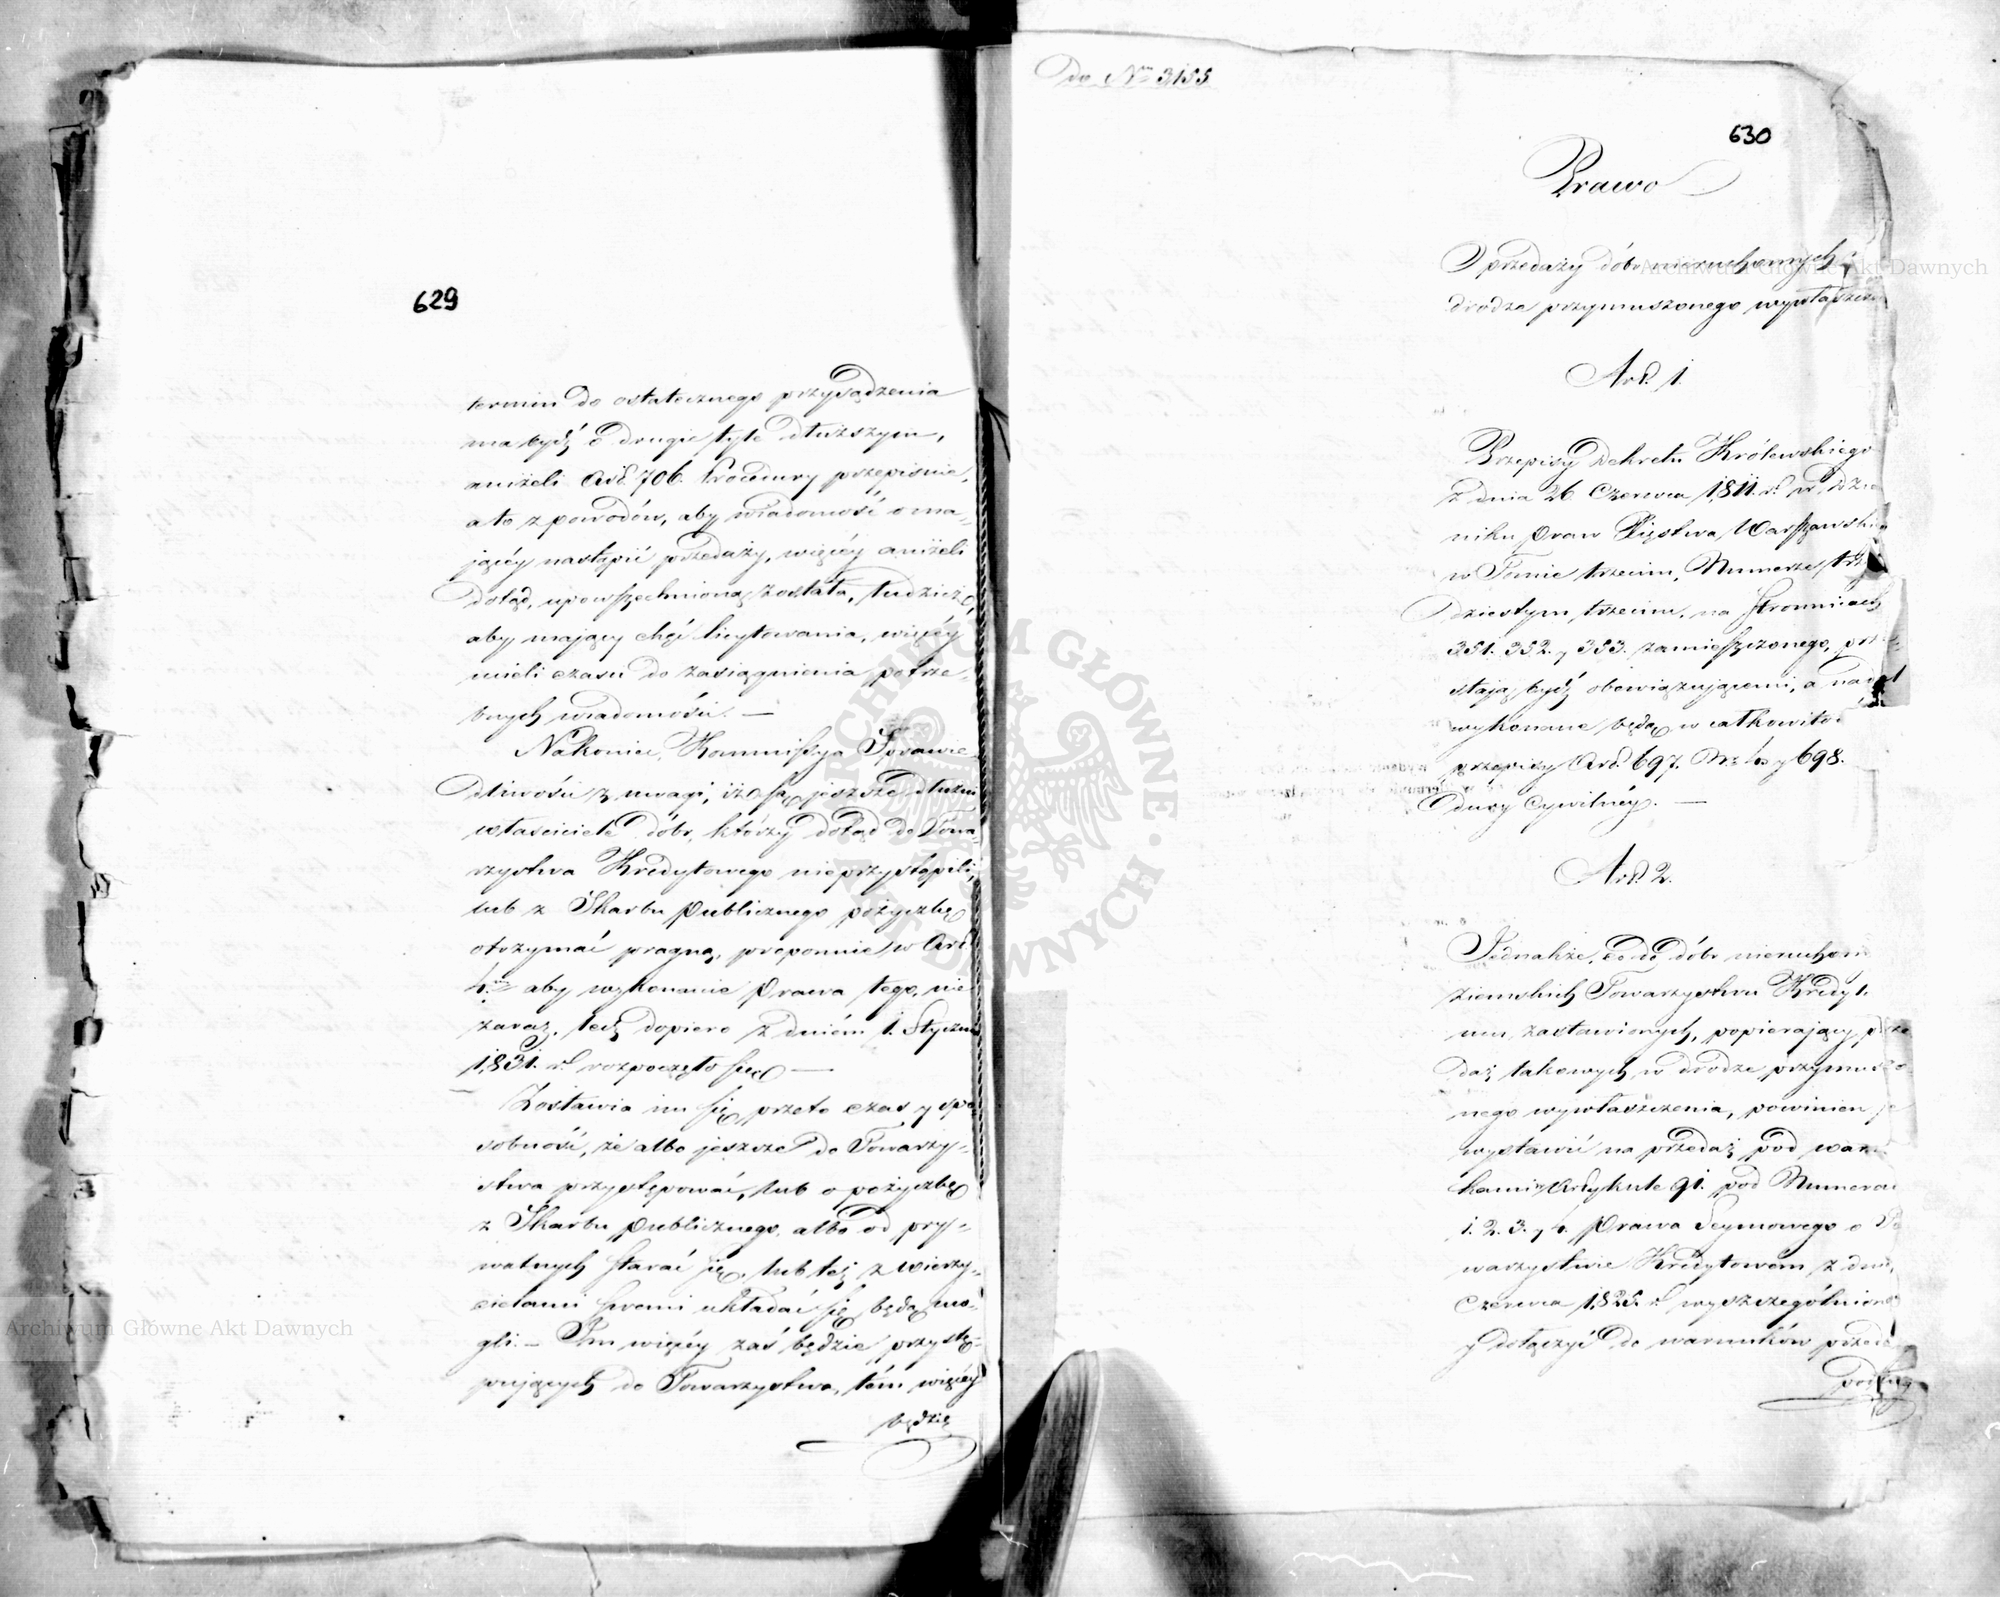 629
termin do ostatecznego przysądzenia
ma bydź o drugie tyle dłuższym,
aniżeli Art. 706. Procedury przepisuie,
a to z powodów, aby wiadomość o ma-
jącéy nastąpić przedaży, więcéy aniżeli
dotąd, upowszechnioną została, tudzież,
aby maiący chęć licytowania, więcéy
mieli czasu do zasiągnienia potrze-
bnych wiadomości. —
Nakoniec, Kommissya Sprawie-
dliwości z uwagi, iż są jeszcze dłużni
właściciele dóbr, którzy dotąd do Towa-
rzystwa Kredytowego nieprzystąpili,
lub z Skarbu publicznego pożyczkę
otrzymać pragną, proponuie w Art.
4. aby wykonanie Prawa tego, nie
zaraz, lecz dopiero z dniem 1. Stycznia
1831. r. rozpoczęło się —
Zostawia im się przeto czas y spo-
sobność, że albo jeszcze do Towarzy-
stwa przystępować, lub o pożyczkę
z Skarbu publicznego, albo od pry-
watnych starać się, lub też z wierzy-
cielami swemi układać się będą mo-
gli. — Im więcéy zaś będzie przystę-
pujących do Towarzystwa, tém więcéy
będzie
Do Nru 3155
630
Prawo
O przedaży dóbr nieruchomych
drodze przymuszonego wywłaszcze
Art. 1.
Przepisy Dekretu Królewskiego
z dnia 26 Czerwca 1811. r. w Dzien
niku praw Xięstwa Warszawskie
w Tomie trzecim, Numerze trzy
dziestym trzecim, na stronnicach
351. 352. y 353. zamieszczonego, prze-
staią bydź obowiązuiącemi, a nadal
wykonane będą w całkowitoś
przepisy Art. 697. y 698.
dury Cywilnéy. —
Art. 2.
Jednakże, co do dóbr nieruchom
ziemskich Towarzystwu Kredyt.
mu zastawionych, popieraiący prze
daż takowych w drodze przymuszo-
nego wywłaszczenia, powinien je
wystawić na przedaż pod warun
kami w Artykule 91. pod Numerami
1. 2. 3. y 4. Prawa Seymowego o To
warzystwie Kredytowém z dnia
Czerwca 1825. r. wyszczególnione
y dołączyć do warunków przeda
podług
Archiwum Główne Akt Dawnych
Archiwum Główne Akt Dawnych
ARCHIWUM GŁÓWNE AKT DAWNYCH